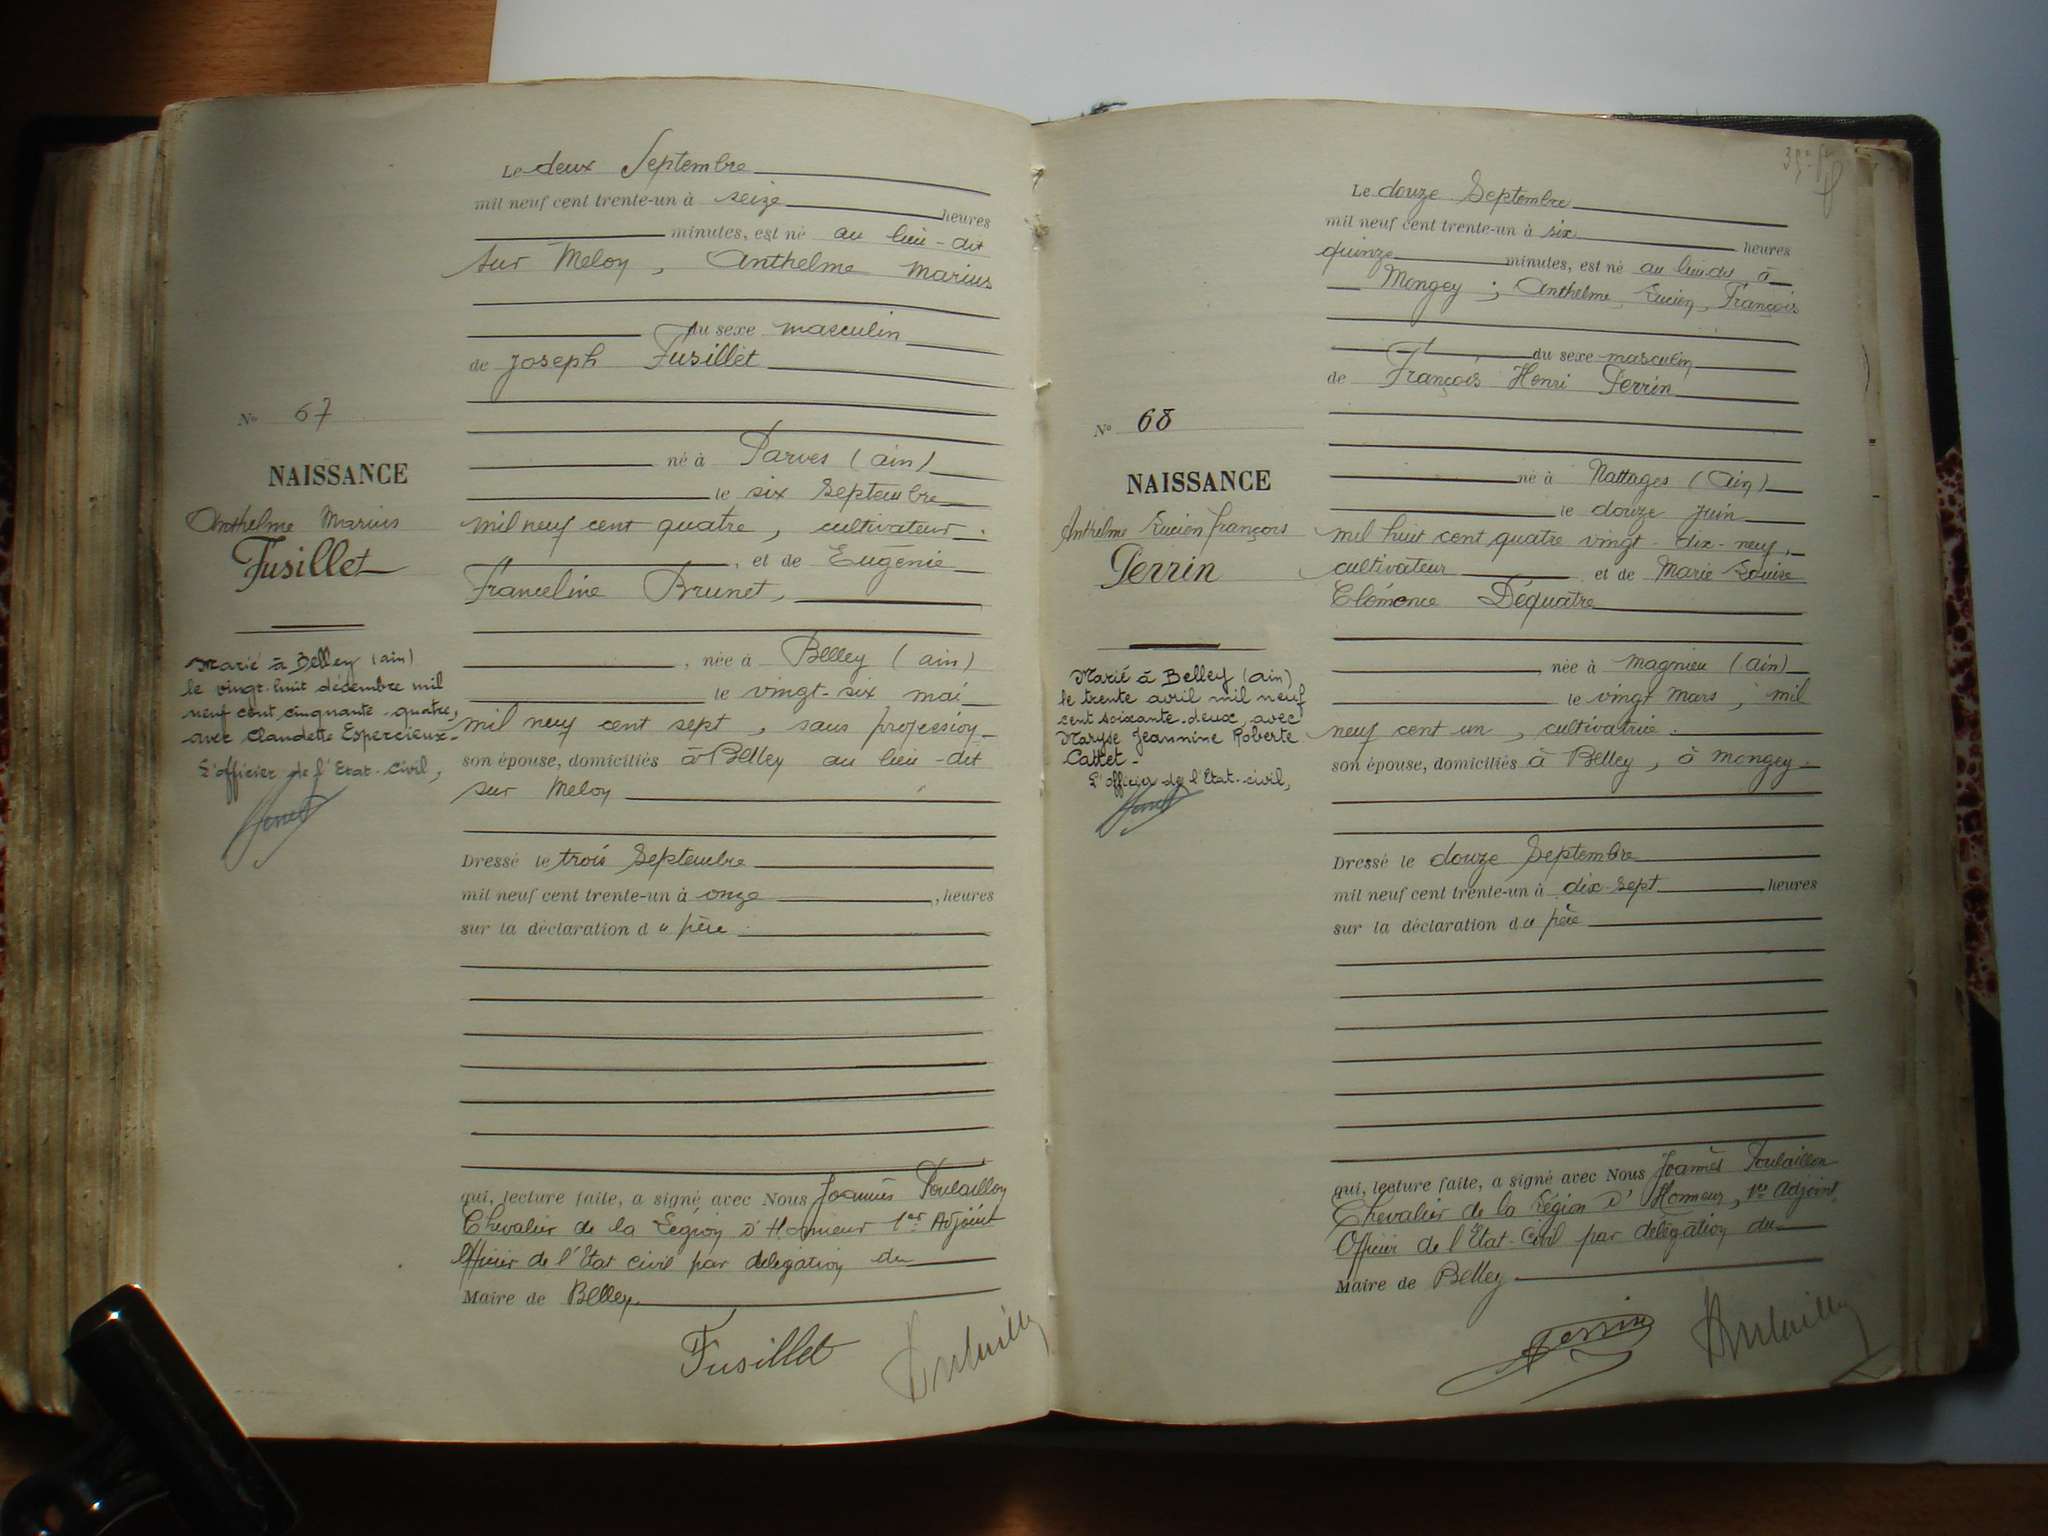 Le deux Septembre
mil neuf cent trente-un à seize heures
minutes, est né au lieu-dit
sur Meloy, Anthelme Marius
du sexe masculin
de Joseph Fusillet
N° 67
né à Parves (Ain)
NAISSANCE
le six Septembre
Anthelme Marius
Fusillet
mil neuf cent quatre, cultivateur.
, et de Eugénie
Franceline Brunet,
Marié à Belley (ain)
le vingt-huit décembre mil
neuf cent cinquante-quatre,
avec Claudette Espercieux-
L'officier de l'Etat-civil,
, née à Belley (ain)
le vingt-six mai
mil neuf cent sept, sans profession
son épouse, domiciliés à Belley au lieu-dit
sur Meloy
Dressé le trois Septembre
mil neuf cent trente-un à onze , heures
sur la déclaration du père
qui, lecture faite, a signé avec Nous Joannès Poulaillon
Chevalier de la Légion d'Honneur 1er Adjoint
Officier de l'Etat civil par délégation du
Maire de Belley.
Fusillet
Le douze Septembre
mil neuf cent trente-un à six heures
quinze minutes, est né au lieu dit à
Mongey ; Anthelme, Lucien, François
du sexe masculin
de François Henri Perrin
N° 68
né à Nattages (Ain)
NAISSANCE
le douze juin
Anthelme Lucien François
Perrin
mil huit cent quatre vingt-dix-neuf,
cultivateur et de Marie Louise
Clémence Dequatre
Marié à Belley (ain)
le trente avril mil neuf
cent soixante-deux, avec
Maryse Jeannine Roberte
Cattet-
L'officier de l'Etat-civil,
, née à Magnieu (Ain)
le vingt Mars, mil
neuf cent un, cultivatrice.
son épouse, domiciliés à Belley, à Mongey-
Dressé le douze Septembre
mil neuf cent trente-un à dix-sept heures
sur la déclaration du père
qui, lecture faite, a signé avec Nous Joannès Poulaillon
Chevalier de la Légion D'Honneur, 1er Adjoint
Officier de l'Etat-Civil par délégation du
Maire de Belley
Perrin